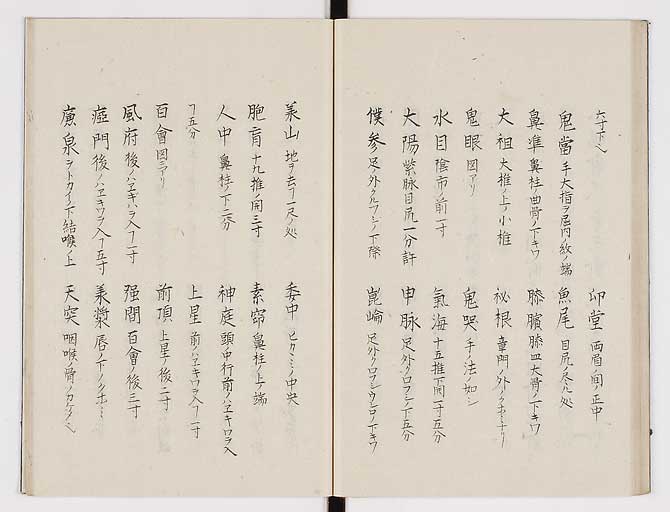 六寸下ヘ　印堂 両眉ノ間ノ正中
鬼當 手大指ヲ屈内ノ紋ノ端　魚尾 目尻ノ尽ル処
鼻準 鼻柱ノ曲骨ノ下キワ　膝臏 膝皿大骨ノ下キワ
大祖 大椎ノ上小椎　秘根 章門ノ外
鬼眼 図アリ　鬼哭 手ノ法ノ如シ
水目 陰市ノ前一寸　氣海 十五推下開一寸五分
大陽 紫脉目尻一分許　申脉 足外クロフシノ下五分
僕参 足ノ外クルフシノ下際　崑崘 足外クロフシウシロノ下キワ
義山 地ヲ去ヿ一尺ノ処　委中 ヒカミノ中央
胞育 十九推ノ開三寸　素窌 鼻柱ノ上ノ端
人中 鼻柱ノ下二分　神庭 頭中行前ノハヱキワヲ入
ヿ五分　上星 前ハヱキワヲ入ヿ一寸
百會 図ニアリ　前頂 上星ノ後二寸
風府 後ノハヱキハヲ入ヿ一寸　强間 百會ノ後三寸
瘂門 後ノハヱキワヲ入ヿ五寸　美漿 唇ノ下ノクホミ
廉泉 ヲトカイノ下結喉ノ上　天突 咽喉ノ骨ノカケノヘ